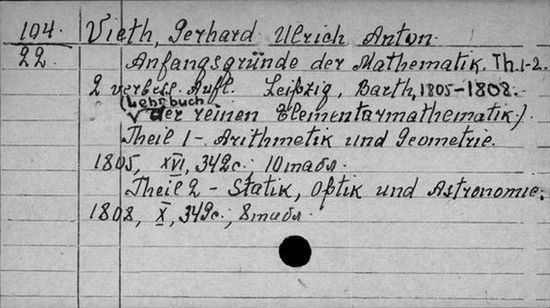 104. Vieth, Gerhard Ulrich Anton.
22. Anfangsgründe der Mathematik. Th. 1-2.
2 verbess. Aufl. Leipzig, Barth, 1805-1808.
(Lehrbuch
der reinen Elementarmathematik.)
Theil 1 - Arithmetik und Geometrie.
1805, XVI, 342 с. 10 табл.
Theil 2 - Statik, Optik und Astronomie.
1808, X, 349 с., 8 табл.